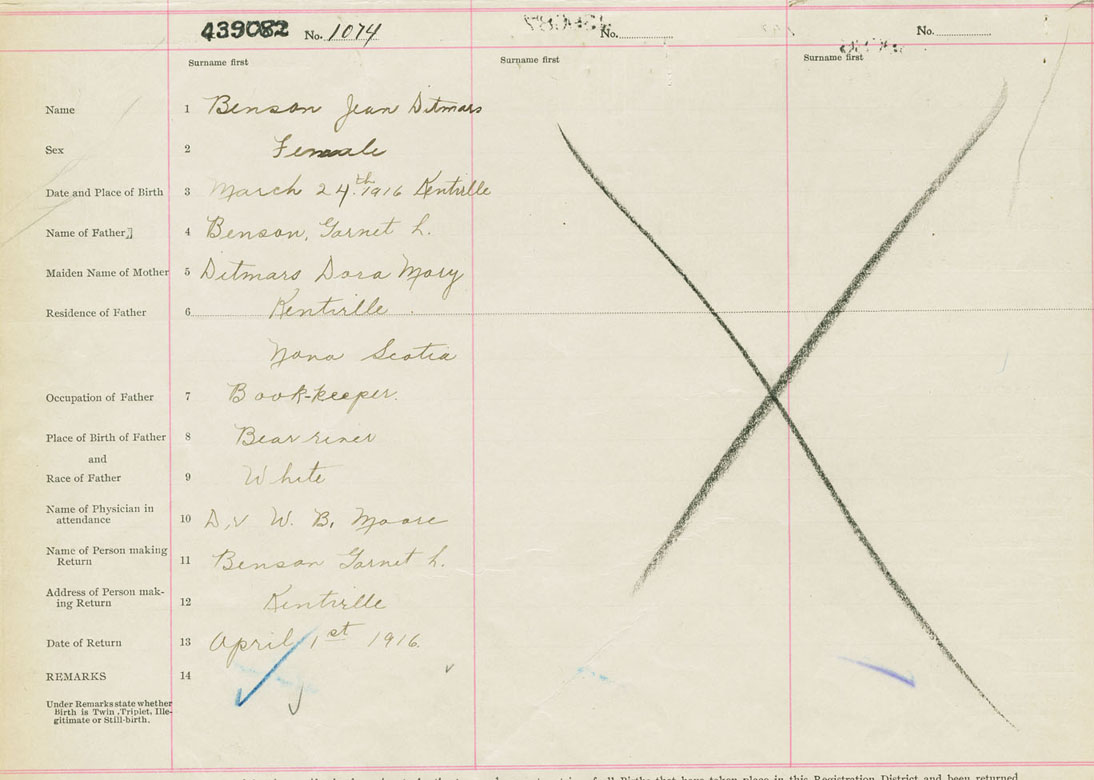 439082 No. 1074 No. No.
Surname first Surname first Surname first
Name 1 Benson Jean Ditmars
Sex 2 Female
Date and Place of Birth 3 March 24th. 1916 Kentville
Name of Father 4 Benson, Garnet L.
Maiden Name of Mother 5 Ditmars Dora Mary
Residence of Father 6 Kentville
Nova Scotia
Occupation of Father 7 Book-keeper.
Place of Birth of Father 8 Bear river
and
Race of Father 9 White
Name of Physician in
attendance 10 Dr W. B. Moore
Name of Person making
Return 11 Benson Garnet L.
Address of Person mak-
ing Return 12 Kentville
Date of Return 13 April 1st 1916.
REMARKS 14
Under Remarks state whether
Birth is Twin, Triplet, Ille-
gitimate or Still-birth.
of all Births that have taken place in this Registration District and been returned